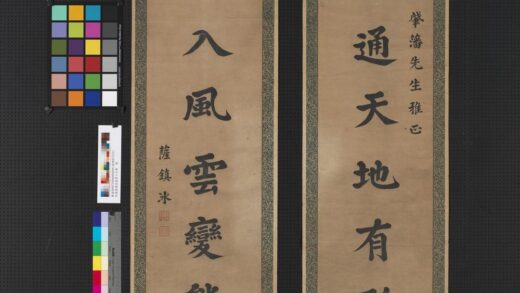 肇藩先生雅正
通天地有
入風雲變
薩鎮冰